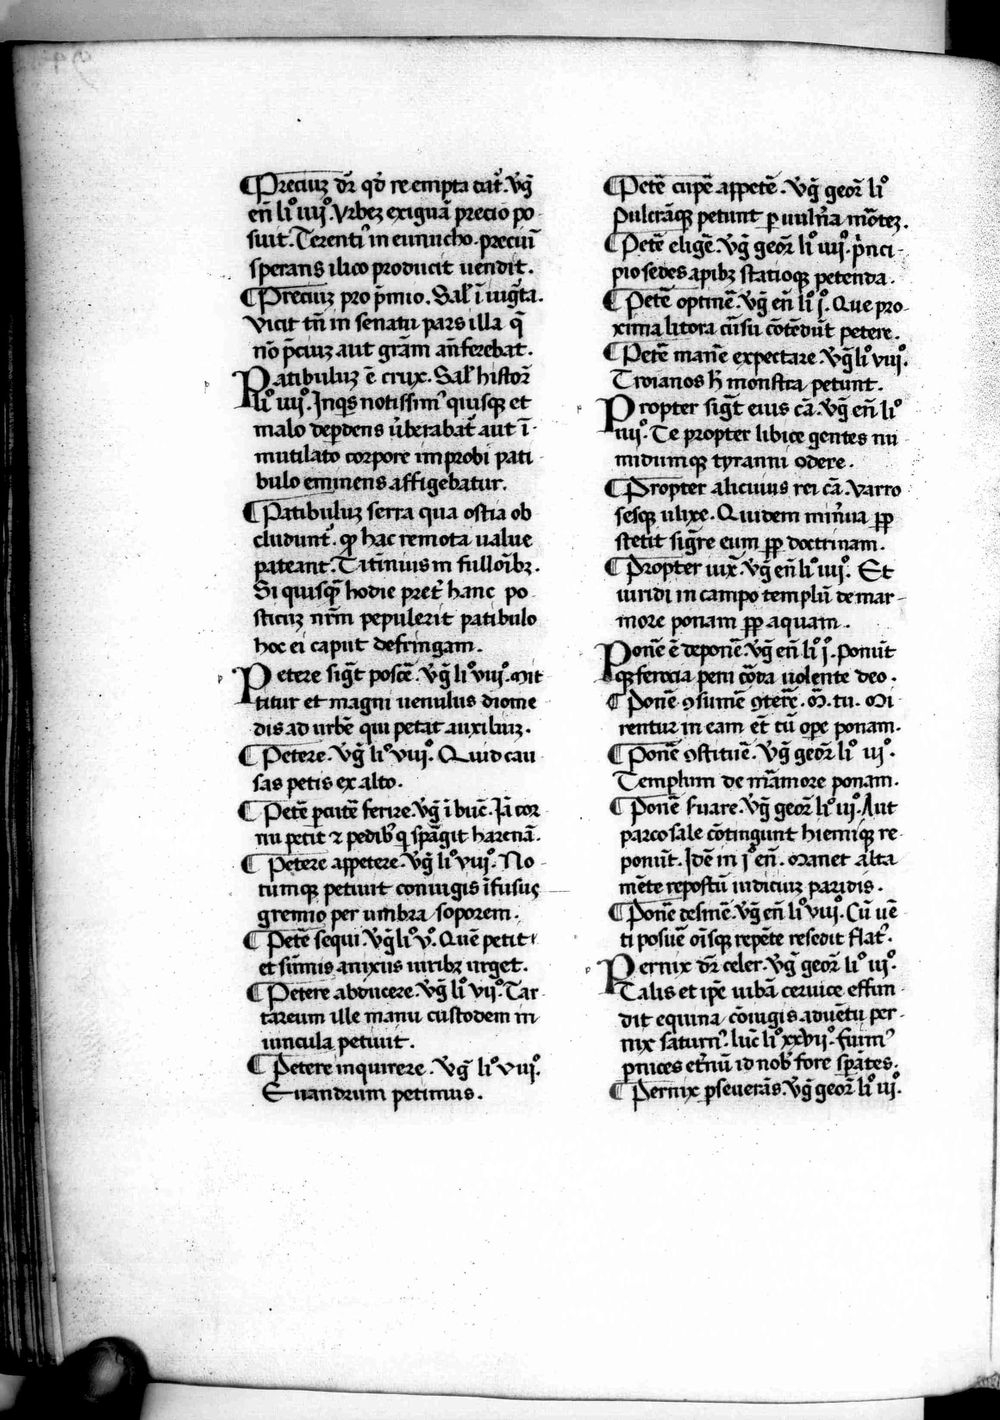 ¶Preciuꝫ dr̄ qd̄ re empta dat᷑. v̓g̅
en̄ liº iiiiº. Vrbeꝫ exiguā precio po
suit. Terenti᷒ in eunucho. preciuī
sperans ilico producit uendit.
¶Preciuꝫ pro p̄mio. Sal᷒ ī iug̅ta.
Vicit tn̄ in senatu pars illa q̄
nō p̄ciuꝫ aut grām an̄ferebat.
Patibuluꝫ ē crux. Sal᷒ histoꝝ
liº iiiiº. Inqꝫ notissim᷒ quisqꝫ et
malo deꝑdens v̓berabat᷑ aut ī
mutilato corpore improbi pati
bulo eminens affigebatur.
¶Patibuluꝫ serra qua ostia ob
cludunt᷑. qꝫ hac remota ualue
pateant. Tatinius in fulloībꝫ.
Si quisqꝫ hodie pret᷑ hanc po
sticuꝫ nr̄m pepulerit patibulo
hoc ei caput defringam.
Petere sig̅t poscē. v̓g̅ liº viiiº. Mit
titur et magni uenulus diome
dis ad urbē qui petat auxiliuꝫ.
¶Petere. v̓g̅ liº viiiº. Quid cau
sas petis ex alto.
¶Petē ꝑcutē ferire. v̓g̅ ī buc̄. Iā cor
nu petit ⁊ pedibꝰ q̇ spāgit harenā.
¶Petere appetere. v̓g̅ liº viiiº. No
tumqꝫ petiuit coniugis īfusuꝫ
gremio per umbra soporem.
¶Petē sequi. v̓g̅ liº vº. Quē petit
et sūmis anixus uiribꝫ urget.
¶Petere abducere. v̓g̅ liº viiº. Tar
tareum ille manu custodem in
uincula petiuit.
¶Petere inquirere. v̓g̅ liº viiiº.
Euandrum petimus.
¶Petē cupē appetē. v̓g̅ geoꝝ liº
pulcrāqꝫ petunt ꝑ uuln̓a mōteꝫ.
¶Petē eligē. v̓g̅ geoꝝ liº iiiiº. p̓nci
pio sedes apibꝫ statioqꝫ petenda.
¶Petē optinē. v̓g̅ en̄ liº iº. Que pro
xima litora cūsu cōtēdūt petere.
¶Petē manē expectare. v̓g̅ liº viiiº.
Troianos h̄ monstra petunt.
Propter sig̅t eius cā. v̓g̅ en̄ liº
iiiiº. Te propter libice gentes nu
midumqꝫ tyranni odere.
¶Propter alicuius rei cā. Varro
sesqꝫ ulixe. Quidem min̓ua ꝓp
stetit sig̅re eum ꝓp doctrinam.
¶Propter iux̄. v̓g̅ en̄ liº iiiiº. Et
uiridi in campo templū de mar
more ponam ꝓp aquam.
Ponē ē deponē. v̓g̅ en̄ liº iº. Poniūt
qꝫ ferocia peni cōda uolente deo.
¶Ponē ꝯsumē ꝯterē. M̄. tu. Mi
rentur in eam et̄ tū ope ponam.
¶Ponē ꝯstituē. v̓g̅ geoꝝ liº iiiº.
Templum de mārmore ponam.
¶Ponē ẜuare. v̓g̅ geoꝝ liº iiiº. Aut
parco sale cōtingunt hiemiqꝫ re
poniūt. Idē in iº en̄. Manet alta
mēte repostū iudiciuꝫ paridis.
¶Ponē desinē. v̓g̅ en̄ liº viiiº. Cū uē
ti posuē oīsqꝫ repēte resedit flat᷒.
Pernix dr̄ celer. v̓g̅ geoꝝ liº iiiº.
Talis et ip̄e iubā ceruice effun
dit equina coiugis aduētu per
nix saturn᷒. luc̄ liº xxviiº. fuim᷒
ꝑnices et̓nū id nob᷒ fore sꝑātes.
¶Pernix ꝑseuerās. v̓g̅ geoꝝ liº iiiº.